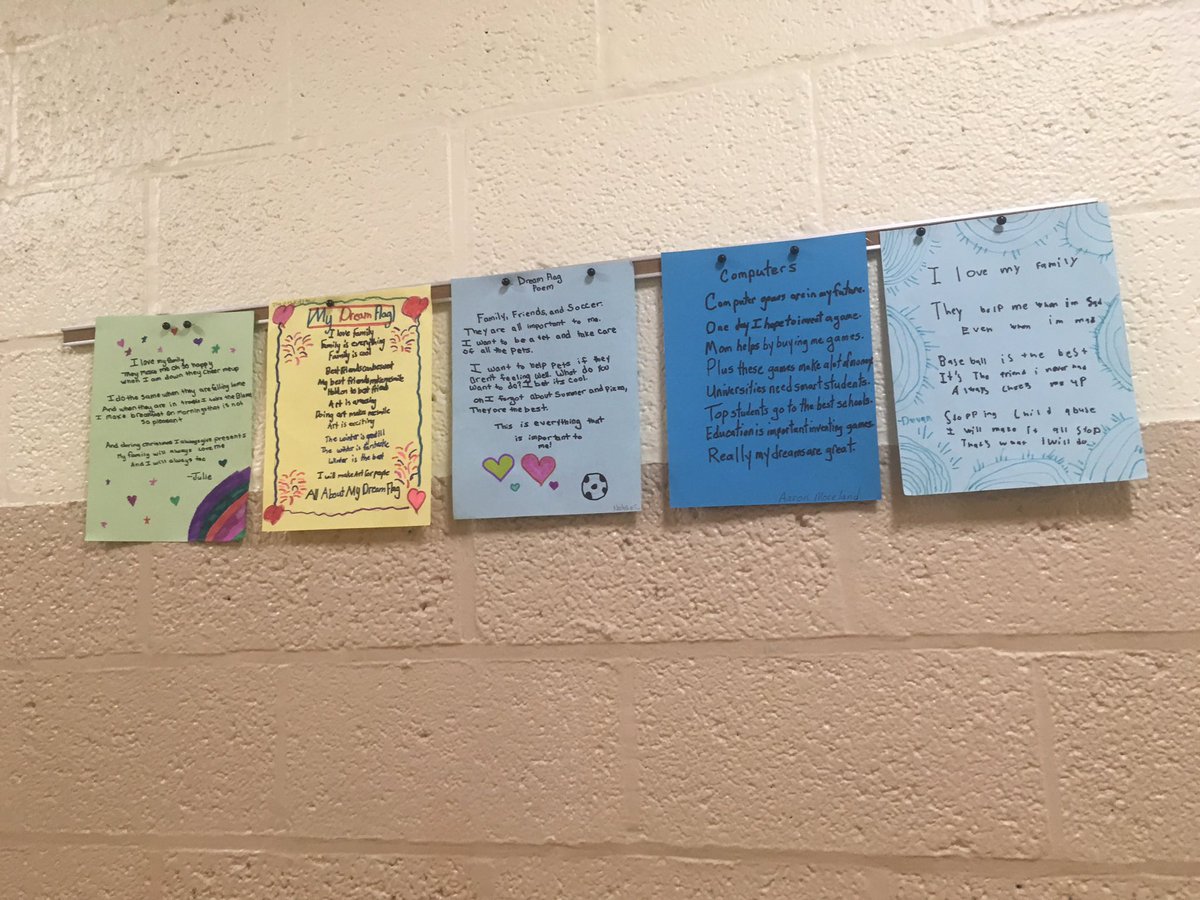 I love my family
They make me oh so happy
when I am down they cheer me up
I do the same when they are falling lame
And when they are in trouble I work the Blame
I make breakfast on mornings that is not
so pleasant
And during christmas I always give presents
My family will always love me
And I will always too
-Julie
My Dream Flag
I love Family
Family is everything
Family is cool
Best friends are the best
My best friends make me smile
Art is amazing
Doing art makes me smile
Art is exciting
The winter is
The winter is fantastic
Winter is the best
I will make Art for people
All About My Dream Flag
Dream Flag
Poem
Family, Friends, and Soccer.
They are all important to me.
I want to be a vet and take care
of all the Pets.
I want to help Pets if they
Arent feeling well. What do you
want to do? I bet its cool.
oh I forgot about Summer and Pizza,
They are the best.
This is everything that
is important to
me!
Computers
Computer games are in my future.
One day I hope to invent a game.
Mom helps by buying me games.
Plus these games make a lot of money.
Universities need smart students.
Top students go to the best schools.
Education is important inventing games.
Really my dreams are great.
Aaron Moreland
I love my Family
They help me when im sad
Even when im mad
Baseball is the best
It's The friend i never had
Always cheers me up
-Devan
Stopping Child abuse
I will make it all stop
That's what I will do